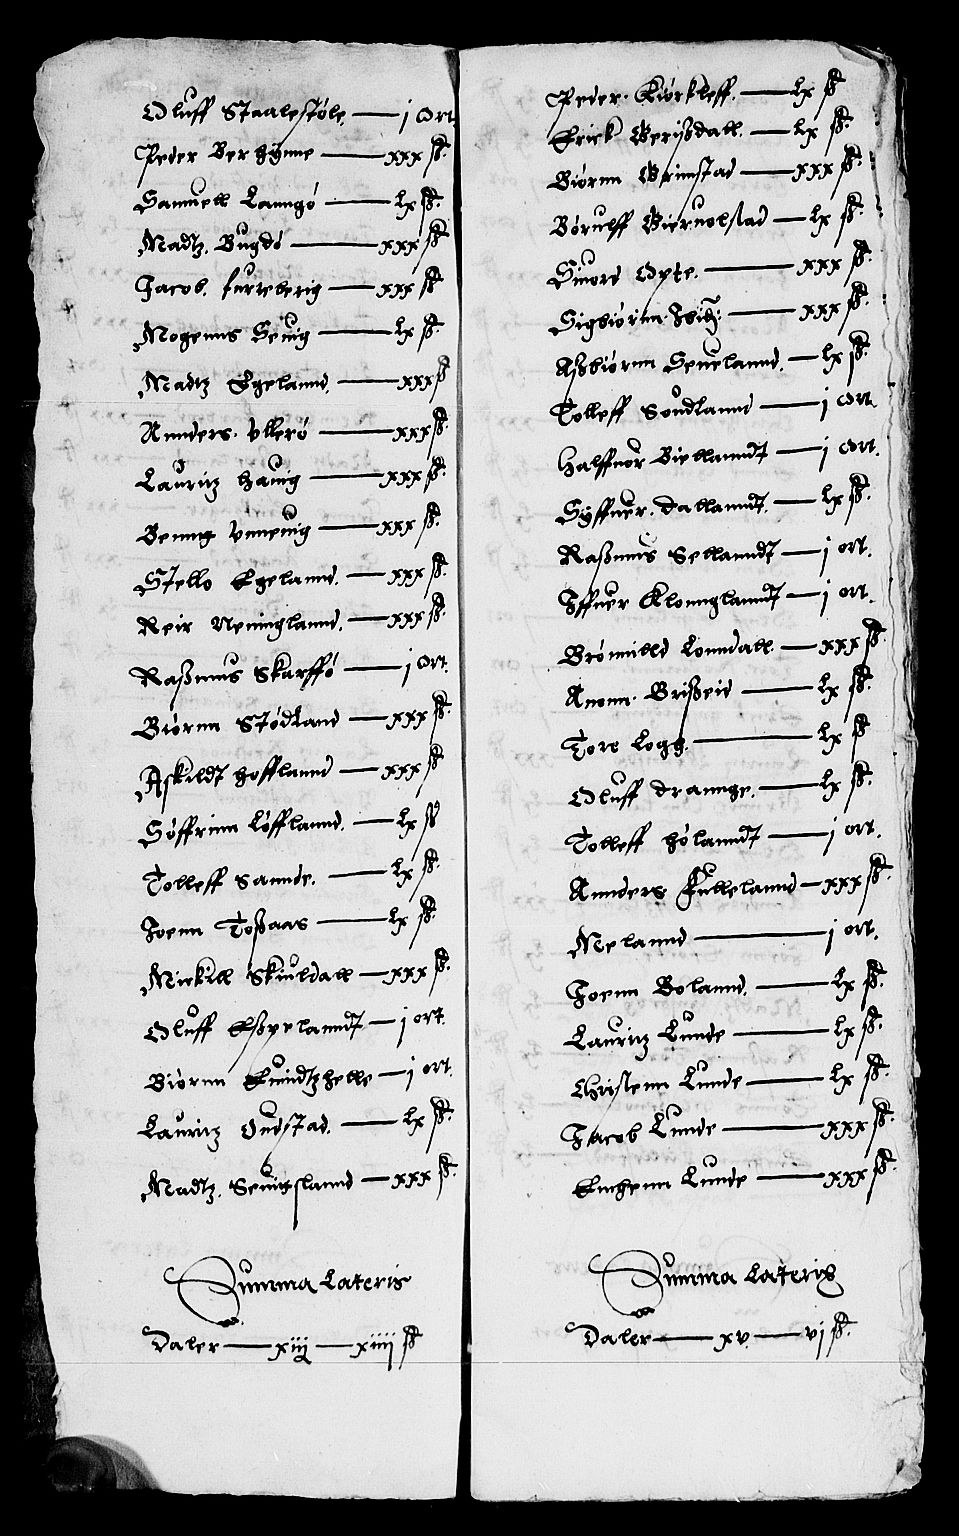 Oluff Staalestøle — j ort
Peder Berhynne — xxx ß.
Samuell Lanngø — lx ß.
Madtz. Bugdø — xxx ß.
Jacob. furreberig — xxx ß
Mogenns Seuig — lx ß.
Madtz Egelannd. — xxx ß
Annders. Vllerø — xxx ß.
Lauritz haug — xxx ß.
Benng Vnneuig — xxx ß.
Stello Egelannd. — xxx ß.
Reir Neninglannd. — xxx ß.
Raßmus Skarffø — j ort.
Biørnn Stødland — xxx ß.
Askildt hofflannd — xxx ß.
Søffrinn Løfflannd. — lx ß
Tolleff Sannde. — lx ß.
Joenn Toßaas — lx ß.
Mickill Skiuldall — xxx ß.
Oluff Eßpelanndt — j ort.
Biørnn Quindtzhelle — j ort.
Lauritz Ondstad. — lx ß.
Madtz. Seuigslannd — xxx ß.
Summa Lateris
Daler — xiij — xiiij ß
Peder. Kiørkleff. — lx ß
Erick Gerißdall. — lx ß.
Biørnn Grimstad — xxx ß.
Børulff Gieruolstad — lx ß.
Siuord Opte. — xxx ß.
Sigbiørnn — xxx ß.
Aßbiørnn Seuelannd. — lx ß.
Tolleff Soudlannd — j ort.
Halffuor Biellanndt — j ort.
Syffuer. Dallanndt. — lx ß.
Raßmus Sellanndt — j ort.
Iffuer Klonnglanndt — j ort.
Brømilld Lonndall — xxx ß.
Anonn. Brißeid — lx ß.
Tore Logg. — lx ß
Oluff Drannge. — lx ß.
Tolleff hølanndt — j ort.
Annders Fullelannd — xxx ß.
Melannd — j ort.
Joenn Bolannd. — lx ß.
Lauritz Lunde — lx ß.
Christenn Lunde — lx ß.
Jacob Lunde — xxx ß.
Enchenn Lunde — xxx ß.
Summa Lateris
Daler — xv. — vj ß.